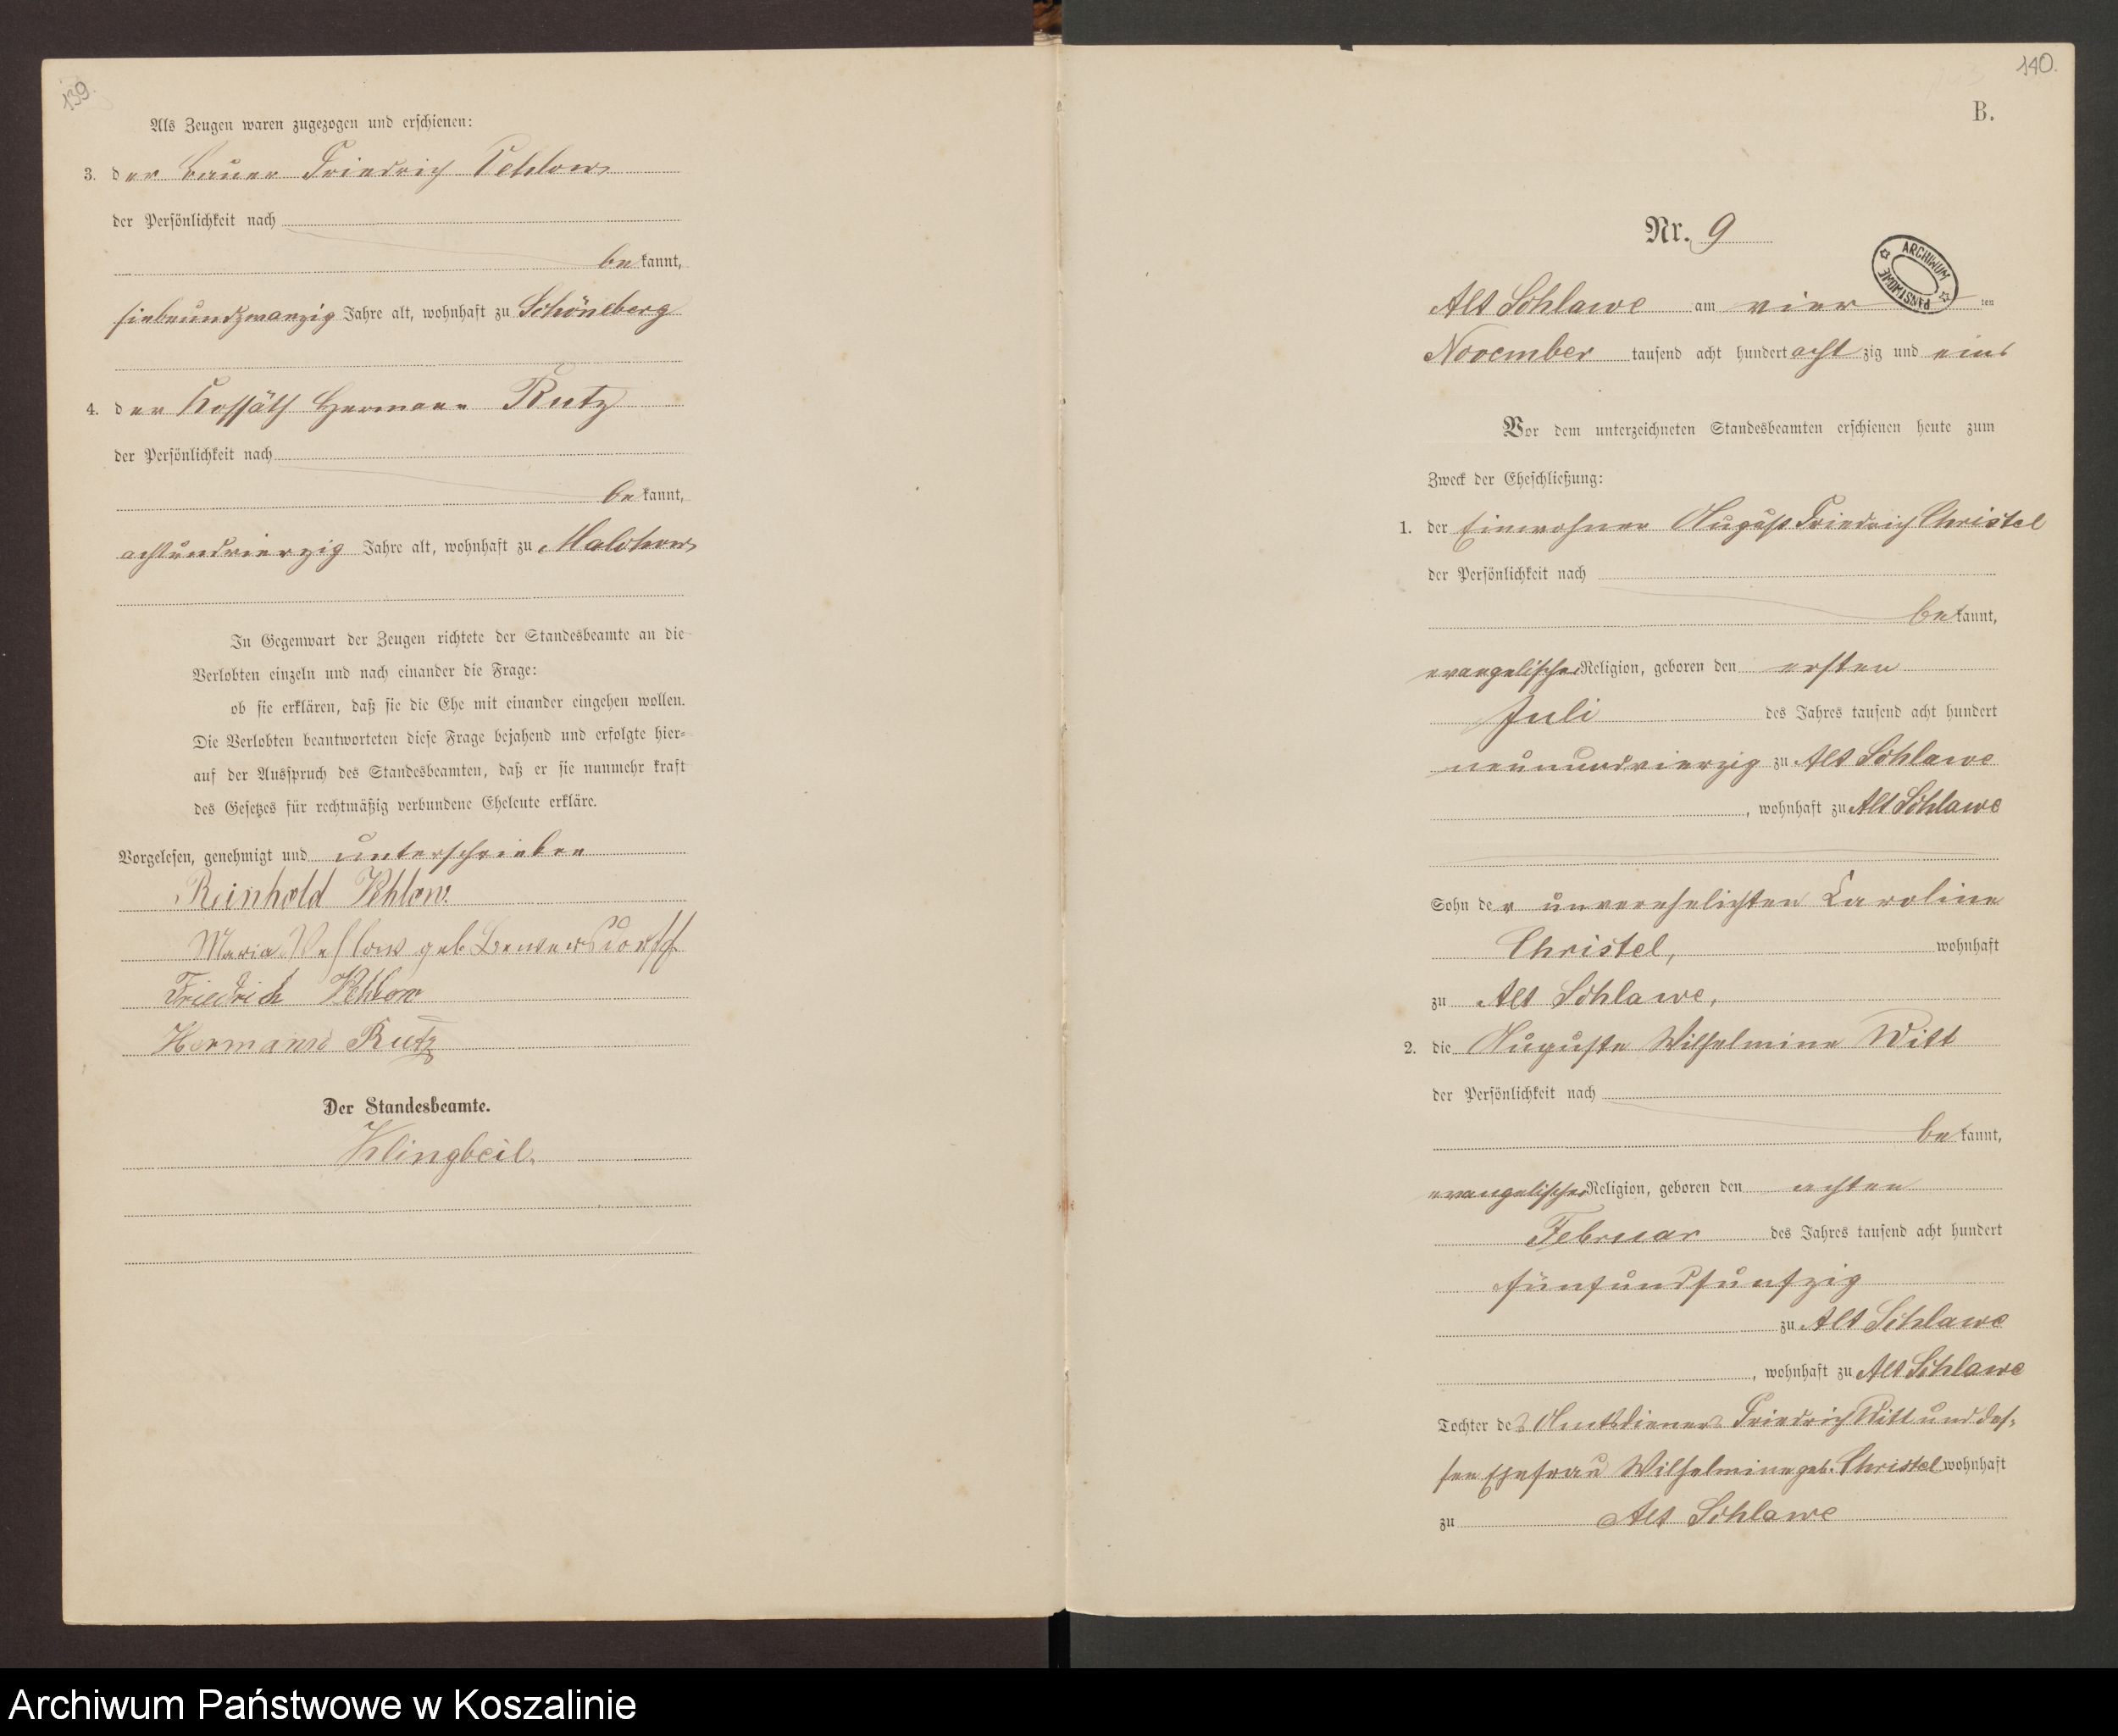 139.
Als Zeugen waren zugezogen und erschienen:
3. der Bauer Friedrich Vehlow
der Persönlichkeit nach
bekannt,
siebenundzwanzig Jahre alt, wohnhaft zu Schöneberg
4. der Kossäth Hermann Rutz
der Persönlichkeit nach
bekannt,
achtundvierzig Jahre alt, wohnhaft zu Malchow
In Gegenwart der Zeugen richtete der Standesbeamte an die
Verlobten einzeln und nach einander die Frage:
ob sie erklären, daß sie die Ehe mit einander eingehen wollen.
Die Verlobten beantworteten diese Frage bejahend und erfolgte hier-
auf der Ausspruch des Standesbeamten, daß er sie nunmehr kraft
des Gesetzes für rechtmäßig verbundene Eheleute erkläre.
Vorgelesen, genehmigt und unterschrieben
Reinhold Vehlow.
Maria Vehlow geb. Bewersdorff
Friedrich Vehlow
Hermann Rutz
Der Standesbeamte.
Klingbeil.
140.
B.
Nr. 9
ARCHIWUM PAŃSTWOWE
Alt Schlawe am vierten
November tausend acht hundert achtzig und eins
Vor dem unterzeichneten Standesbeamten erschienen heute zum
Zweck der Eheschließung:
1. der Einwohner August Friedrich Christel
der Persönlichkeit nach
bekannt,
evangelischer Religion, geboren den ersten
Juli des Jahres tausend acht hundert
neunundvierzig zu Alt Schlawe
, wohnhaft zu Alt Schlawe
Sohn der unverehelichten Caroline
Christel, wohnhaft
zu Alt Schlawe,
2. die Auguste Wilhelmine Witt
der Persönlichkeit nach
bekannt,
evangelischer Religion, geboren den achten
Februar des Jahres tausend acht hundert
fünfundfünfzig
zu Alt Schlawe
, wohnhaft zu Alt Schlawe
Tochter des Amtsdieners Friedrich Witt und des-
sen Ehefrau Wilhelmine geb. Christel wohnhaft
zu Alt Schlawe
Archiwum Państwowe w Koszalinie